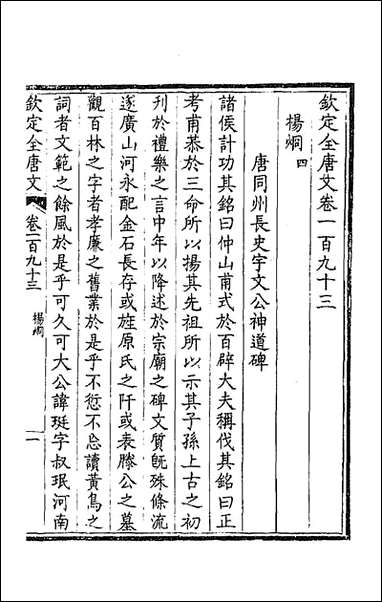 欽定全唐文卷一百九十三
楊烱 四
唐同州長史宇文公神道碑
諸侯計功其銘曰仲山甫式於百辟大夫稱伐其銘曰正
考甫恭於三命所以揚其先祖所以示其子孫上古之初
刊於禮樂之言中年以降述於宗廟之碑文質旣殊條流
遂廣山河永配金石長存或旌原氏之阡或表滕公之墓
觀百林之字者孝廉之舊業於是乎不愆不忘讀黃鳥之
詞者文範之餘風於是乎可久可大公諱珽字叔珉河南
欽定全唐文 卷一百九十三 楊烱 一